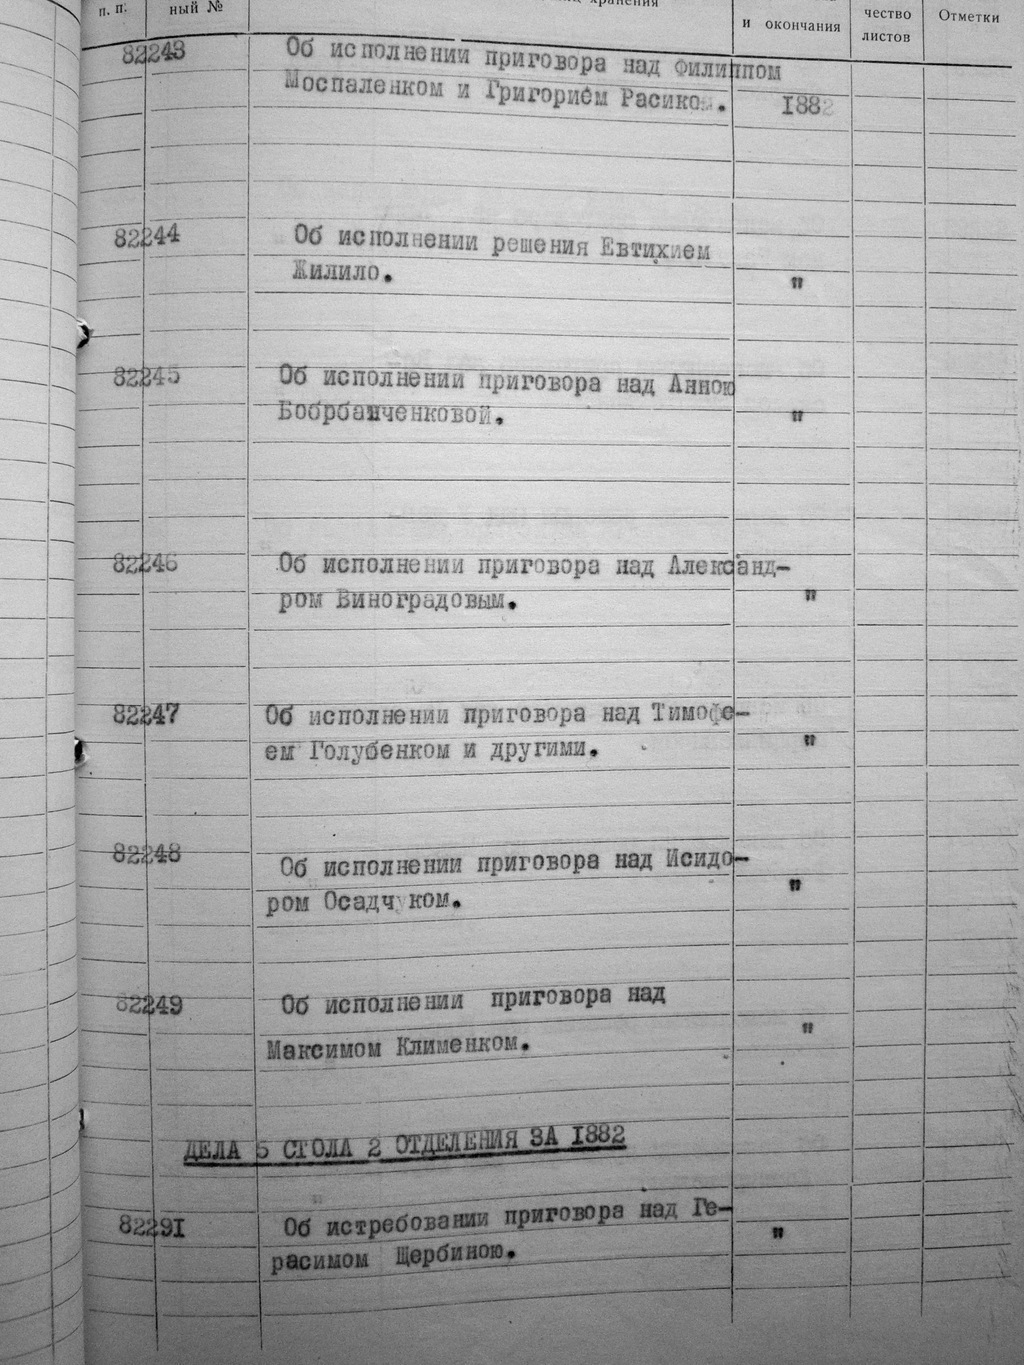 п. п. ный № хранения и окончания чество листов Отметки
82243 Об исполнении приговора над Филиппом
Моспаленком и Григорием Расиком. 1882
82244 Об исполнении решения Евтихием
Жилило. "
82245 Об исполнении приговора над Анною
Бобрбанченковой. "
82246 Об исполнении приговора над Александ-
ром Виноградовым. "
82247 Об исполнении приговора над Тимофе-
ем Голубенком и другими. "
82248 Об исполнении приговора над Исидо-
ром Осадчуком. "
82249 Об исполнении приговора над
Максимом Клименком. "
ДЕЛА 5 СТОЛА 2 ОТДЕЛЕНИЯ ЗА 1882
82291 Об истребовании приговора над Ге-
расимом Щербиною. "